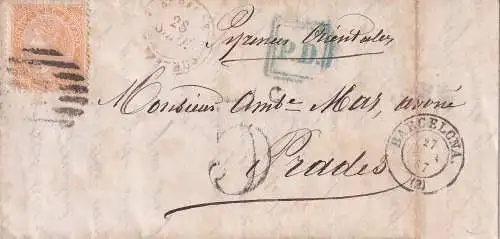 28
Pyrenees Orientales
P.D.
Monsieur Amb.e Mas, avoué
5
Prades
BARCELONA.
27
(2)